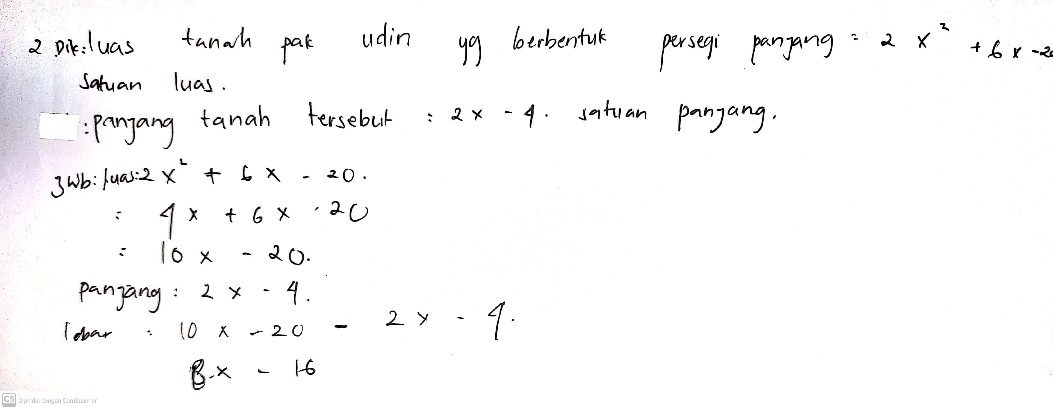 2 Dik: luas tanah pak udin yg berbentuk persegi panjang = 2x² + 6x - 20
satuan luas.
: panjang tanah tersebut : 2x - 4. satuan panjang.
Jwb: luas: 2x² + 6x - 20.
: 4x + 6x - 20
: 10x - 20.
panjang : 2x - 4.
lebar : 10x - 20 - 2x - 4.
8x - 16
CS Dipindai dengan CamScanner